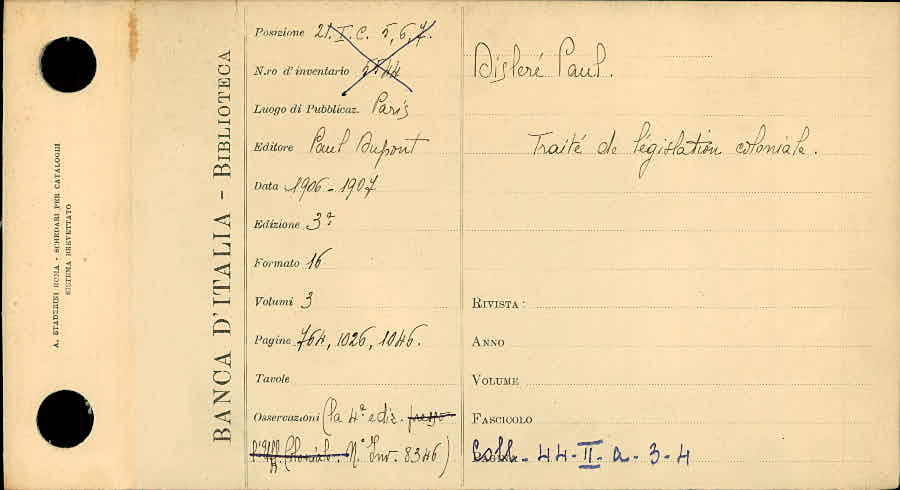 A. STADERINI ROMA - SCHEDARI PER CATALOGHI
SISTEMA BREVETTATO
BANCA D'ITALIA - BIBLIOTECA
Posizione 21. I. C. 5, 6, 7.
N.ro d'inventario
Luogo di Pubblicaz. Paris
Editore Paul Dupont
Data 1906-1907
Edizione 3ª
Formato 16
Volumi 3
Pagine 764, 1026, 1046.
Tavole
Osservazioni (la 4ª ediz. presso
l'Uff. Coloniale. N° Inv. 8346)
Disleré Paul.
Traité de législation coloniale.
RIVISTA:
ANNO
VOLUME
FASCICOLO
Coll. 44-II-a-3-4